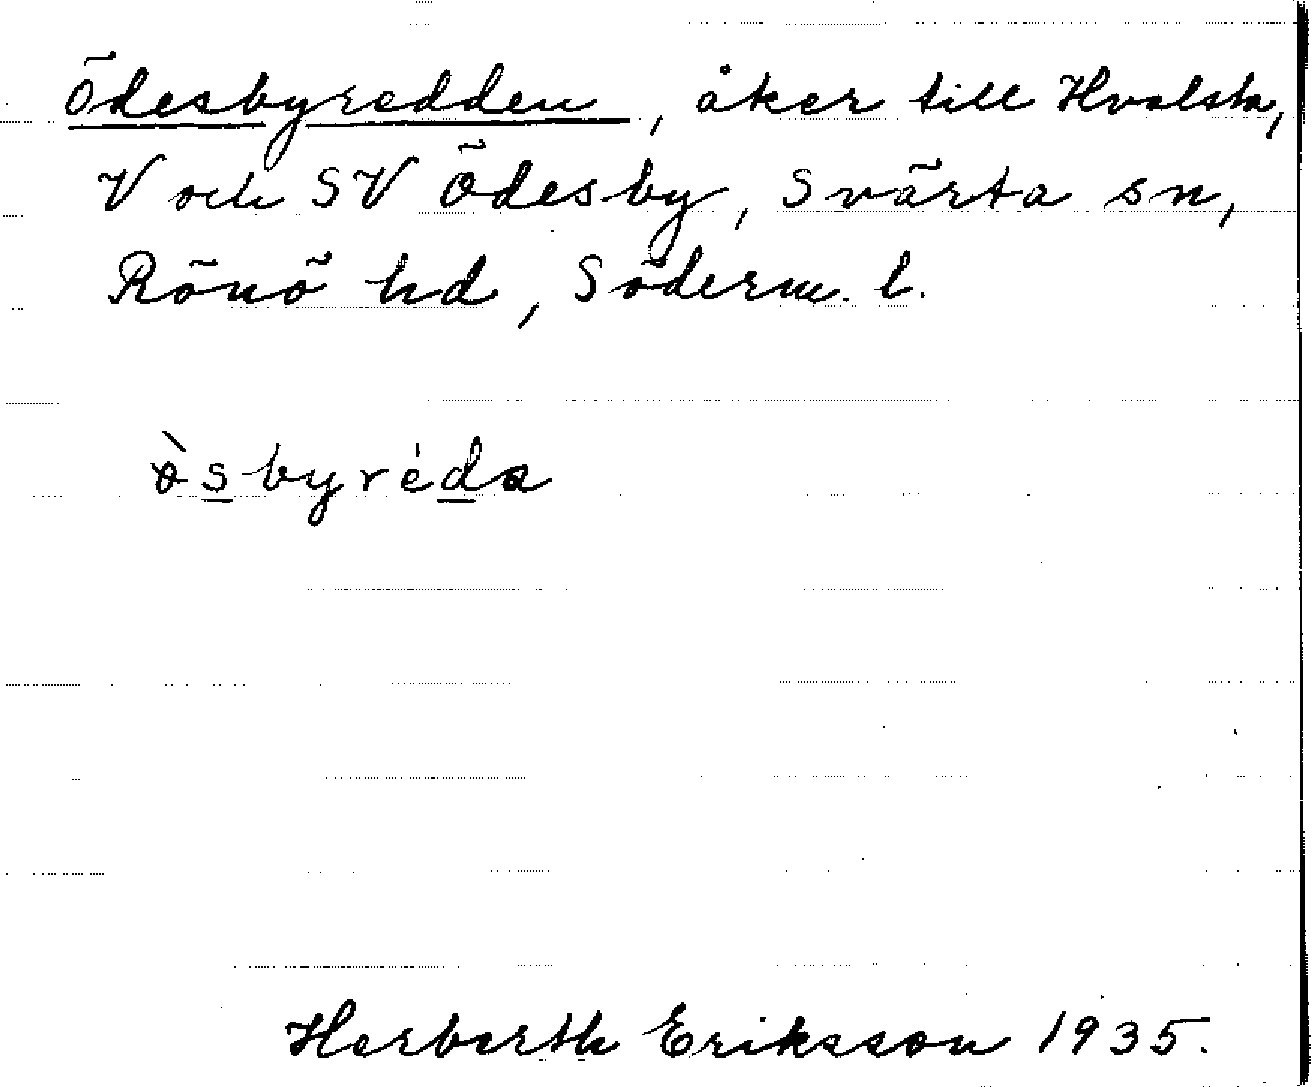 Ödesbyredden, åker till Hvalsta,
V och SV Ödesby, Svärta sn,
Rönö hd, Söderm. l.
ø̀sbyréda
Herberth Eriksson 1935.